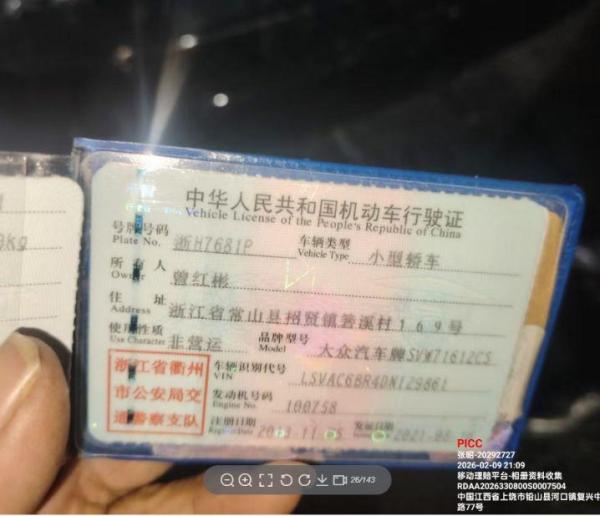 kg
中华人民共和国机动车行驶证
Vehicle License of the People's Republic of China
号牌号码 浙H7681P 车辆类型 小型轿车
Plate No. Vehicle Type
所有人 曾红彬
Owner
住址 浙江省常山县招贤镇箬溪村169号
Address
使用性质 非营运 品牌型号 大众汽车牌SVW71612CS
Use Character Model
浙江省衢州
市公安局交
通警察支队
车辆识别代号 LSVAC6BR4DN129861
VIN
发动机号码 100758
Engine No.
注册日期 发证日期
Register Date
26/143
PICC
张昭-20292727
2026-02-09 21:09
移动理赔平台-相册资料收集
RDAA2026330800S0007504
中国江西省上饶市铅山县河口镇复兴中
路77号